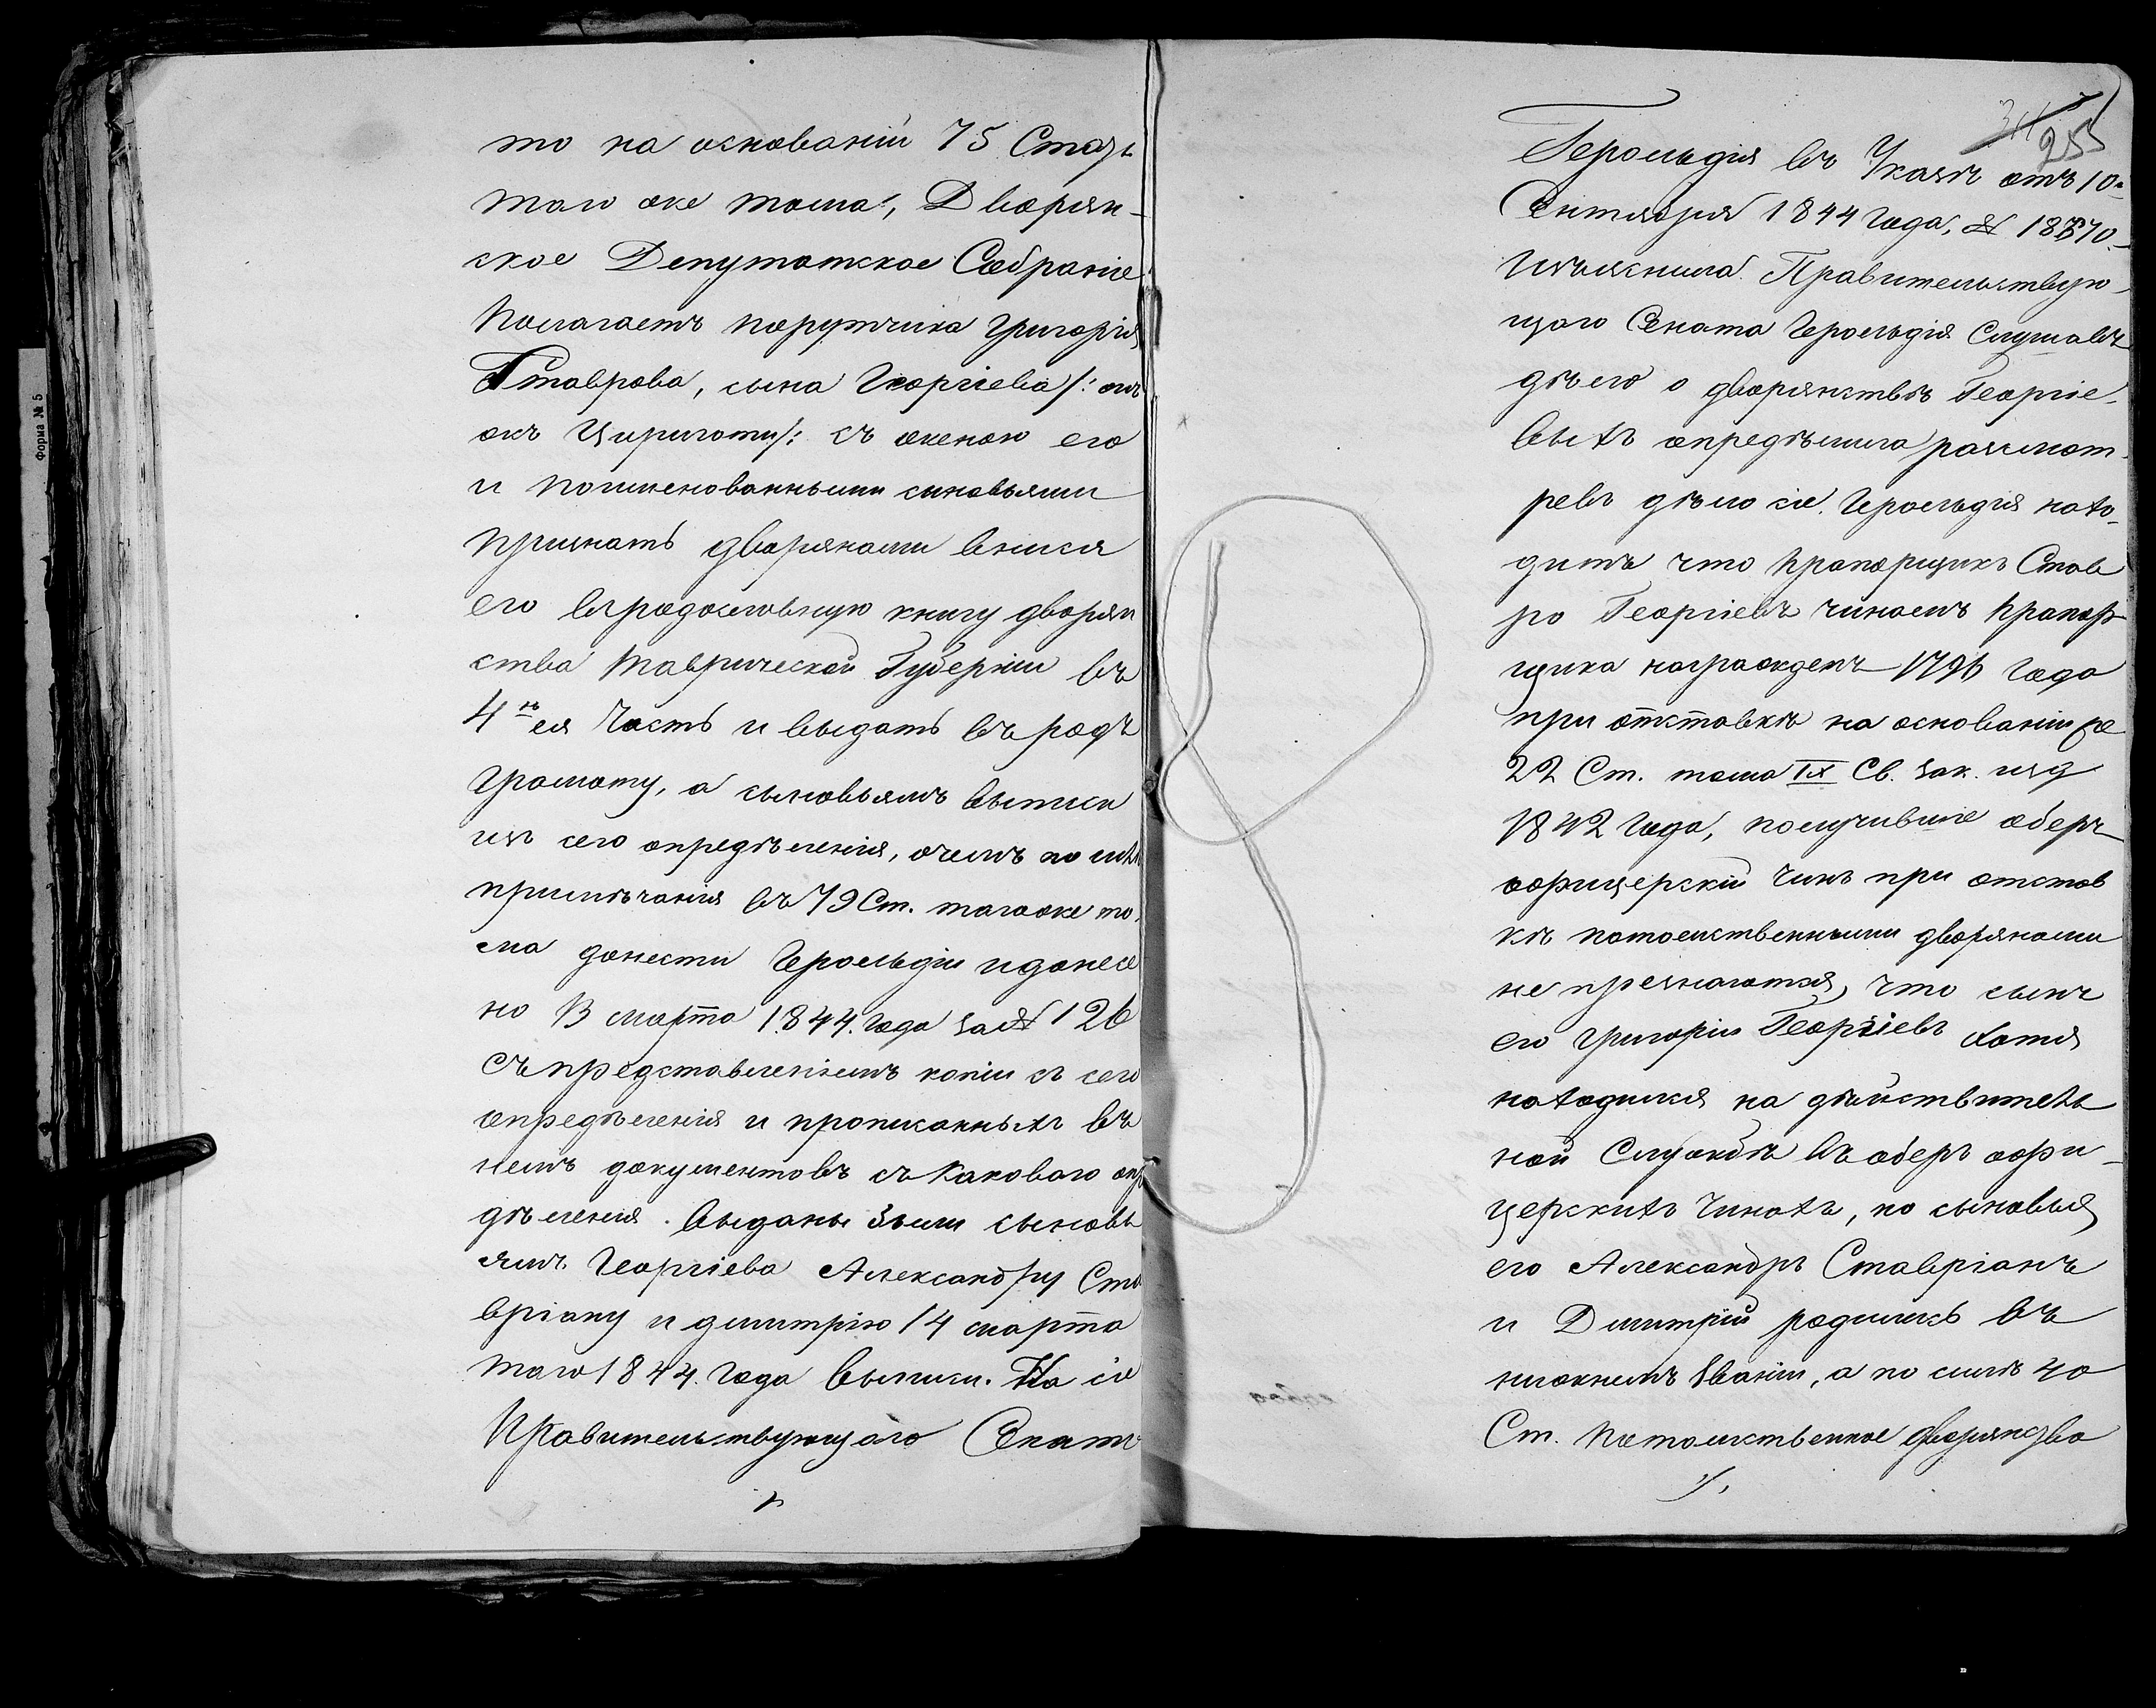 то на основаніи 75 Стать
того же тома, Дворян-
ское Депутатское Собраніе
полагаетъ поручика Григорія
Ставрова, сына Георгіева /: онъ
жъ Цириготи/: съ женою его
и поименованными сыновьями
признать дворянами внися
его въ родословную книгу дворян
ства Таврической Губерніи въ
4ю ея часть и выдать въ родъ
грамоту, а сыновьямъ выписи
изъ сего опредѣленія, о чемъ по
примѣчанія въ 79 Ст. тогоже то
ма донести Герольдіи и донесе
но 13 марта 1844 года за № 126
съ представленіемъ копіи съ сего
опредѣленія и прописанныхъ въ
немъ документовъ съ каковаго опр
дѣленія. Выданы 3мъ сыновь
ямъ Георгіева Александру Ста
вріану и дмитрію 14 марта
того 1844 года выписи. На сіе
Правительствующаго Сената
255
Герольдія въ Указѣ отъ 10го
Сентября 1844 года, № 18870
изъяснила. Правительствую-
щаго Сената Герольдія Слушавъ
дѣло о дворянствѣ Георгіе-
выхъ опредѣлила разсмот-
ревъ дѣло сіе, Герольдія нахо-
дитъ что прапорщикъ Став
ро Георгіевъ чиномъ прапор
щика награжденъ 1796 года
при отставкѣ на основаніи же
22 Ст. тома IX Св. Зак. изд
1842 года, получившіе оберъ
офицерскій чинъ при отстав
кѣ потомственными дворянами
не признаются, что сынъ
его Григорій Георгіевъ хотя
находился на дѣйствитель
ной Службѣ въ оберъ офи-
церскихъ чинахъ, но сыновья
его Александръ Ставріанъ
и Дмитрій родились въ
нижнемъ званіи, а по силѣ 40
Ст. потомственное дворянство